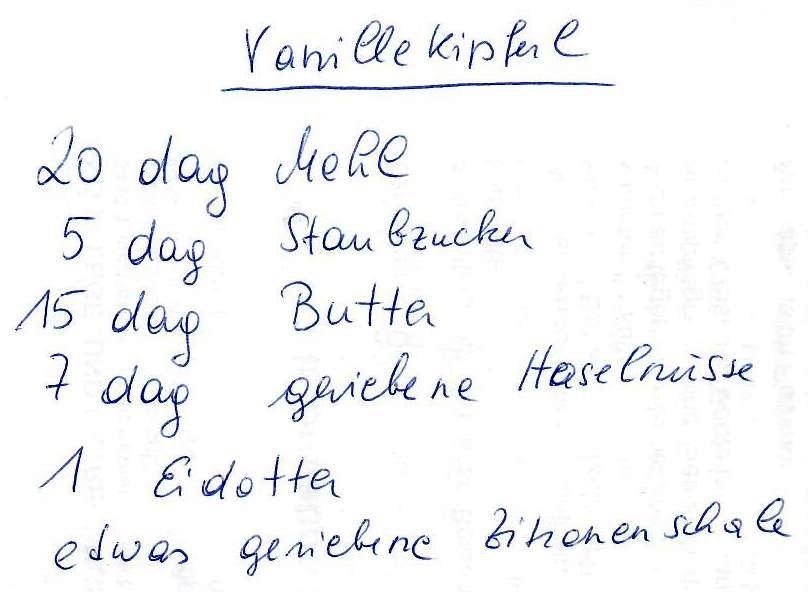 Vanillekipferl
20 dag Mehl
5 dag Staubzucker
15 dag Butter
7 dag geriebene Haselnüsse
1 Eidotter
etwas geriebene Zitronenschale